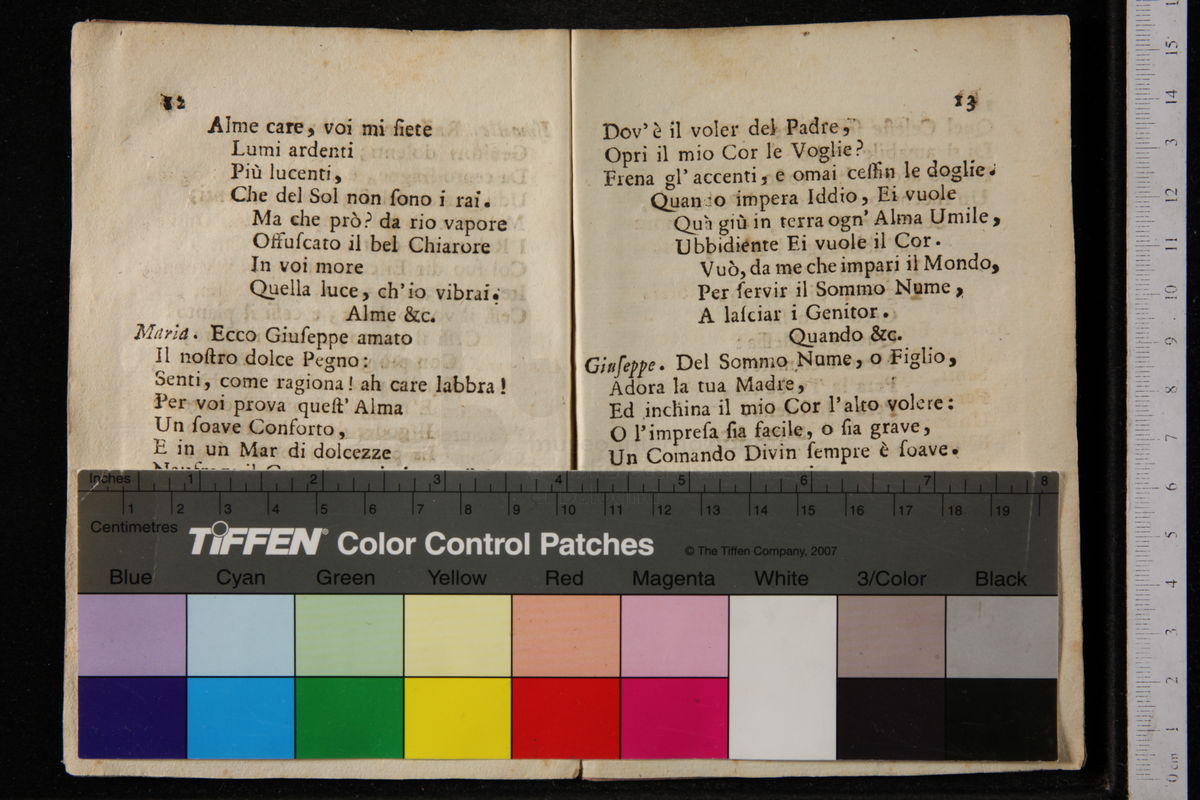 12
Alme care, voi mi ſiete
Lumi ardenti
Più lucenti,
Che del Sol non ſono i rai.
Ma che prò? da rio vapore
Offuſcato il bel Chiarore
In voi more
Quella luce, ch'io vibrai.
Alme &c.
Maria. Ecco Giuſeppe amato
Il noſtro dolce Pegno:
Senti, come ragiona! ah care labbra!
Per voi prova queſt' Alma
Un ſoave Conforto,
E in un Mar di dolcezze
13
Dov'è il voler del Padre,
Opri il mio Cor le Voglie?
Frena gl' accenti, e omai ceſſin le doglie.
Quando impera Iddio, Ei vuole
Quà giù in terra ogn' Alma Umile,
Ubbidiente Ei vuole il Cor.
Vuò, da me che impari il Mondo,
Per ſervir il Sommo Nume,
A laſciar i Genitor.
Quando &c.
Giuſeppe. Del Sommo Nume, o Figlio,
Adora la tua Madre,
Ed inchina il mio Cor l'alto volere:
O l'impreſa ſia facile, o ſia grave,
Un Comando Divin ſempre è ſoave.
Inches 1 2 3 4 5 6 7 8
1 2 3 4 5 6 7 8 9 10 11 12 13 14 15 16 17 18 19
Centimetres
TIFFEN® Color Control Patches © The Tiffen Company, 2007
Blue Cyan Green Yellow Red Magenta White 3/Color Black
15
14
13
12
11
10
9
8
7
6
5
4
3
2
1
0 cm